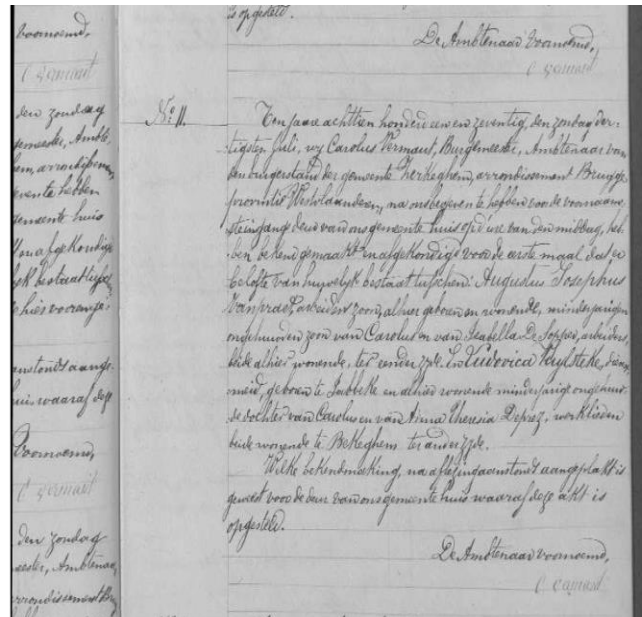 is opgesteld.
De Ambtenaar voornoemd,
C Vermaut
Voornoemd,
C Vermaut
den zondag
Burgemeester, Ambte,
hem, arrondissem
gemeente hebben
gemeente huis
afgekondig
bestaat
hier voorenge
aangs.
huis waaraf deze
Voornoemd,
C Vermaut
den zondag
Ambtenaar
arrondissement
No 11.
Ten jaare achttien honderd een en zeventig, den zondag der-
tigsten Juli, wy Carolus Vermaut, Burgemeester, Ambtenaar van
den burgerstand der gemeente Zerkeghem, arrondissement Brugge
provintie Westvlaanderen, na ons begeven te hebben voor de voornaame
ste ingang deur van ons gemeente huis op d'ure van den middag, heb-
ben bekend gemaakt en afgekondigd voor de eerste maal dat er
belofte van huwelyk bestaat tusschen: Augustus Josephus
Vanpraet, arbeider zoon, alhier geboren en wonende, minderjarigen
ongehuwden zoon van Carolus en van Isabella De Soppere, arbeiders,
beide alhier wonende, ter eender zyde. En Ludovica Huylsteke, dienst
meid, geboren te Jabbeke en alhier wonende minderjarige ongehuw-
de dochter van Carolus en van Anna Theresia Deprez, werklieden
beide wonende te Bekeghem ter ander zyde.
Welke bekendmaking, na aflezing aanstonds aangeplakt is
geweest voor de deur van ons gemeente huis waaraf deze akt is
opgesteld.
De Ambtenaar voornoemd,
C Vermaut